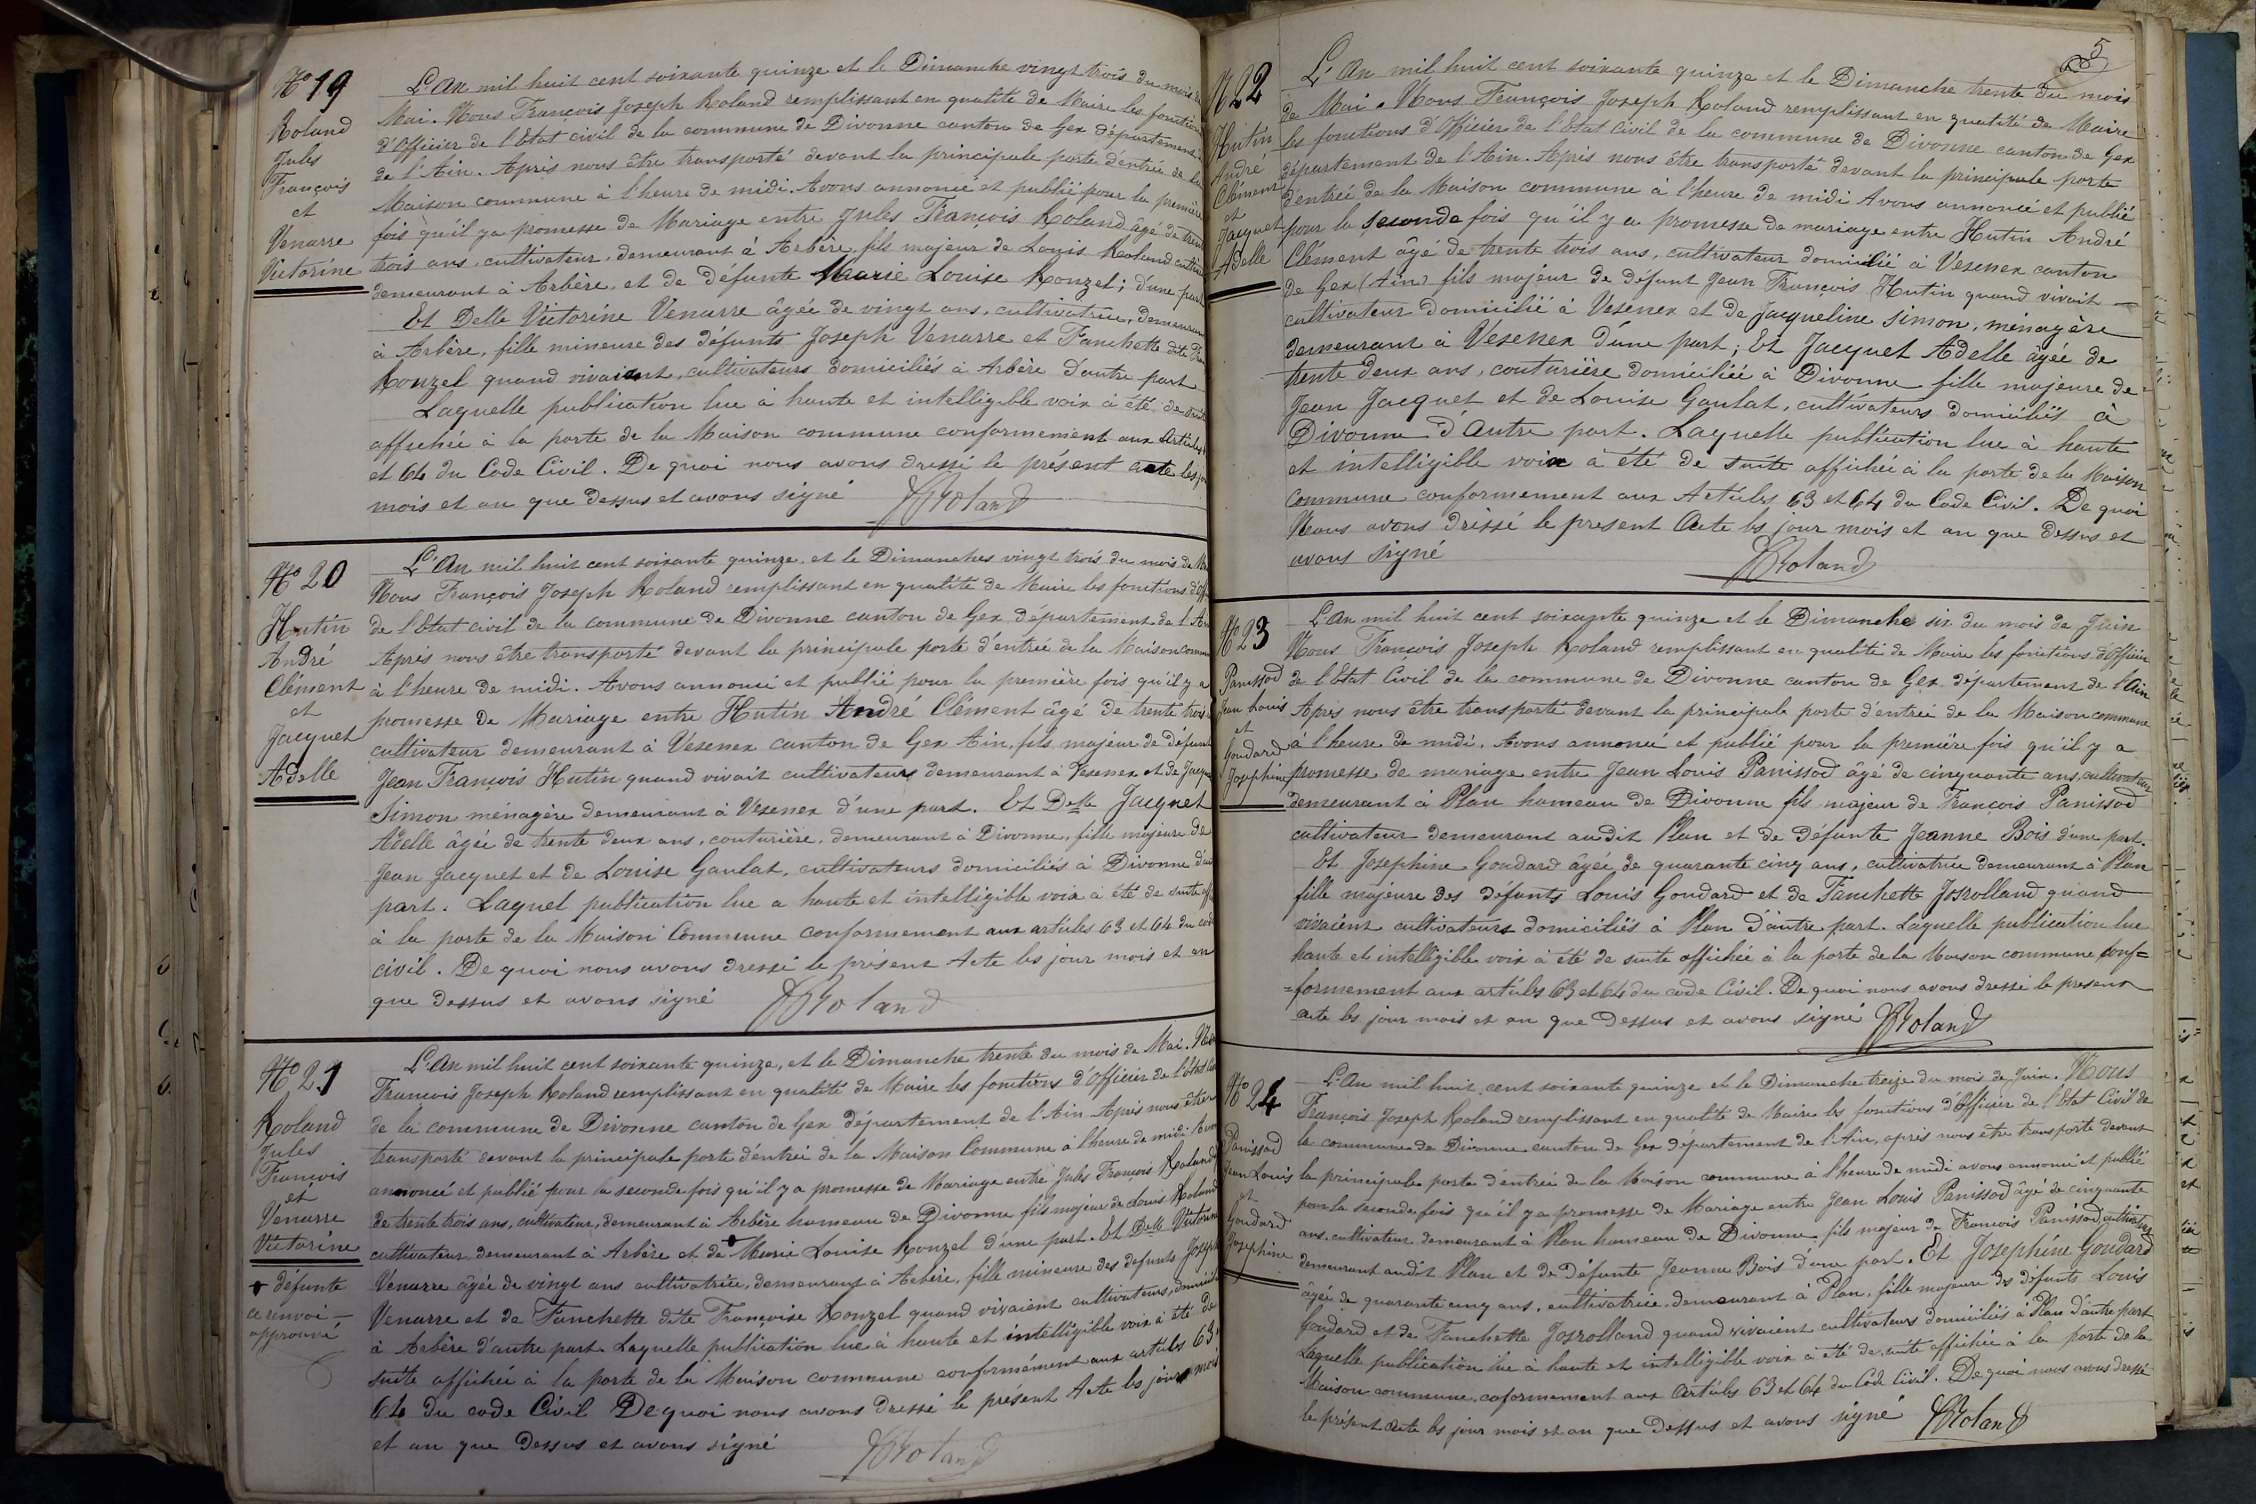 Nº 19
Roland
Jules
François
et
Venarre
Victorine
L'An mil huit cent soixante quinze et le Dimanche vingt trois du mois de
Mai. Nous François Joseph Roland remplissant en qualité de Maire les fonctions
d'Officier de l'Etat civil de la commune de Divonne canton de Gex département
de l'Ain. Après nous être transporté devant la principale porte d'entrée de la
Maison commune à l'heure de midi. Avons annoncé et publié pour la première
fois qu'il y a promesse de Mariage entre Jules François Roland âgé de trente
trois ans, cultivateur, demeurant à Arbère, fils majeur de Louis Roland
demeurant à Arbère, et de défunte Marie Louise Rouzel; d'une part
Et Delle Victorine Venarre âgée de vingt ans, cultivatrice, demeurant
à Arbère, fille mineure des défunts Joseph Venarre et Fanchette dite
Rouzel quand vivaient, cultivateurs domiciliés à Arbère d'autre part
Laquelle publication lue à haute et intelligible voix a été de suite
affichée à la porte de la Maison commune conformement aux Articles
et 64 du Code Civil. De quoi nous avons dressé le présent acte les
mois et an que dessus et avons signé Roland
Nº 20
Hutin
André
Clément
et
Jacquet
Adelle
L'An mil huit cent soixante quinze, et le Dimanches vingt trois du mois de
Nous François Joseph Roland remplissant en qualité de Maire les fonctions
de l'Etat civil de la commune de Divonne canton de Gex département de l'Ain
Après nous être transporté devant la principale porte d'entrée de la Maison commune
à l'heure de midi. Avons annoncé et publié pour la première fois qu'il y a
promesse de Mariage entre Hutin André Clément âgé de trente trois
cultivateur demeurant à Vesenex canton de Gex Ain, fils majeur de défunt
Jean François Hutin quand vivait cultivateurs demeurant à Vesenex et de
Simon ménagère demeurant à Vesenex d'une part. Et Delle Jacquet
Adelle âgée de trente deux ans, couturière, demeurant à Divonne, fille majeure de
Jean Jacquet et de Louise Gaulat, cultivateurs domiciliés à Divonne
part. Laquel publication lue a haute et intelligible voix a été de suite
à la porte de la Maison Commune conformement aux articles 63 et 64 du
civil. De quoi nous avons dressé le présent Acte les jour mois et an
que dessus et avons signé Roland
Nº 21
Roland
Jules
François
et
Venarre
Victorine
défunte
ce renvoi
approuvé
L'An mil huit cent soixante quinze, et le Dimanche trente du mois de Mai.
François Joseph Roland remplissant en qualité de Maire les fonctions d'Officier de l'état
de la commune de Divonne canton de Gex département de l'Ain Après nous être
transporté devant la principale porte d'entrée de la Maison Commune à l'heure de midi
annoncé et publié pour la seconde fois qu'il y a promesse de Mariage entre Jules François Roland
de trente trois ans, cultivateur, demeurant à Arbère hameau de Divonne fils majeur de Louis Roland
cultivateur demeurant à Arbère et de Marie Louise Rouzel d'une part. Et Delle Victorine
Venarre âgée de vingt ans cultivatrice, demeurant à Arbère, fille mineure des défunts Joseph
Venarre et de Fanchette dite Françoise Rouzel quand vivaient cultivateurs,
à Arbère d'autre part. Laquelle publication lue à haute et intelligible voix a été de
suite affichée à la porte de la Maison commune conformément aux articles 63
64 du code Civil De quoi nous avons dressé le présent Acte les jour mois
et an que dessus et avons signé Roland
5
N 22
Hutin
André
Clément
et
Jacquet
Adelle
L'An mil huit cent soixante quinze et le Dimanche trente du mois
de Mai. Nous François Joseph Roland remplissant en qualité de Maire
les fonctions d'Officier de l'Etat civil de la commune de Divonne canton de Gex
département de l'Ain. Après nous être transporté devant la principale porte
d'entrée de la Maison commune à l'heure de midi Avons annoncé et publié
pour la seconde fois qu'il y a promesse de mariage entre Hutin André
Clément âgé de trente trois ans, cultivateur domicilié à Vesenex canton
de Gex (Ain) fils majeur de défunt Jean François Hutin quand vivait
cultivateur domicilié à Vesenex et de Jacqueline Simon, ménagère
demeurant à Vesenex d'une part; Et Jacquet Adelle âgée de
trente deux ans, couturière domiciliée à Divonne fille majeure de
Jean Jacquet et de Louise Gaulat, cultivateurs domiciliés à
Divonne d'autre part. Laquelle publication lue à haute
et intelligible voix a été de suite affichée à la porte de la Maison
commune conformement aux Articles 63 et 64 du Code Civil. De quoi
Nous avons dressé le present Acte les jour mois et an que dessus et
avons signé Roland
Nº 23
Panissod
Jean Louis
et
Goudard
Josephine
L'An mil huit cent soixante quinze et le Dimanche six du mois de Juin
Nous François Joseph Roland remplissant en qualité de Maire les fonctions d'Officier
de l'Etat Civil de la commune de Divonne canton de Gex département de l'Ain
Après nous être transporté devant la principale porte d'entrée de la Maison commune
à l'heure de midi. Avons annoncé et publié pour la première fois qu'il y a
promesse de mariage entre Jean Louis Panissod âgé de cinquante ans, cultivateur
demeurant à Plan hameau de Divonne fils majeur de François Panissod
cultivateur demeurant audit Plan et de défunte Jeanne Bois d'une part.
Et Josephine Goudard âgée de quarante cinq ans, cultivatrice demeurant à Plan
fille majeure des défunts Louis Goudard et de Fanchette Josrolland quand
vivaient cultivateurs domiciliés à Plan d'autre part. Laquelle publication lue
haute et intelligible voix a été de suite affichée à la porte de la Maison commune conf=
=formement aux articles 63 et 64 du code Civil. De quoi nous avons dressé le present
acte les jour mois et an que dessus et avons signé Roland
Nº 24
Panissod
Jean Louis
et
Goudard
Josephine
L'An mil huit cent soixante quinze et le Dimanche treize du mois de Juin. Nous
François Joseph Roland remplissant en qualité de Maire les fonctions d'Officier de l'Etat Civil de
la commune de Divonne canton de Gex département de l'Ain, après nous être transporté devant
la principale porte d'entrée de la Maison commune à l'heure de midi avons annoncé et publié
pour la seconde fois qu'il y a promesse de Mariage entre Jean Louis Panissod âgé de cinquante
ans cultivateur demeurant à Plan hameau de Divonne fils majeur de François Panissod cultivateur
demeurant audit Plan et de défunte Jeanne Bois d'une part. Et Josephine Goudard
âgée de quarante cinq ans, cultivatrice, demeurant à Plan, fille majeure des défunts Louis
Goudard et de Fanchette Josrolland quand vivaient cultivateurs domiciliés à Plan d'autre part
Laquelle publication lue à haute et intelligible voix a été de suite affichée à la porte de la
Maison commune, coformement aux articles 63 et 64 du Code Civil. De quoi nous avons dressé
le présent acte les jour mois et an que dessus et avons signé Roland